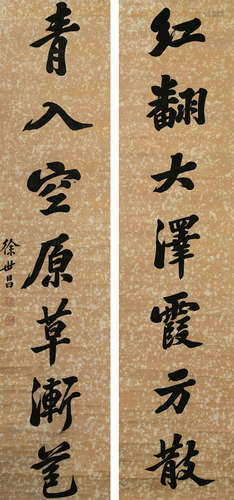 红翻大澤霞方散
青入空原草漸苞
徐世昌